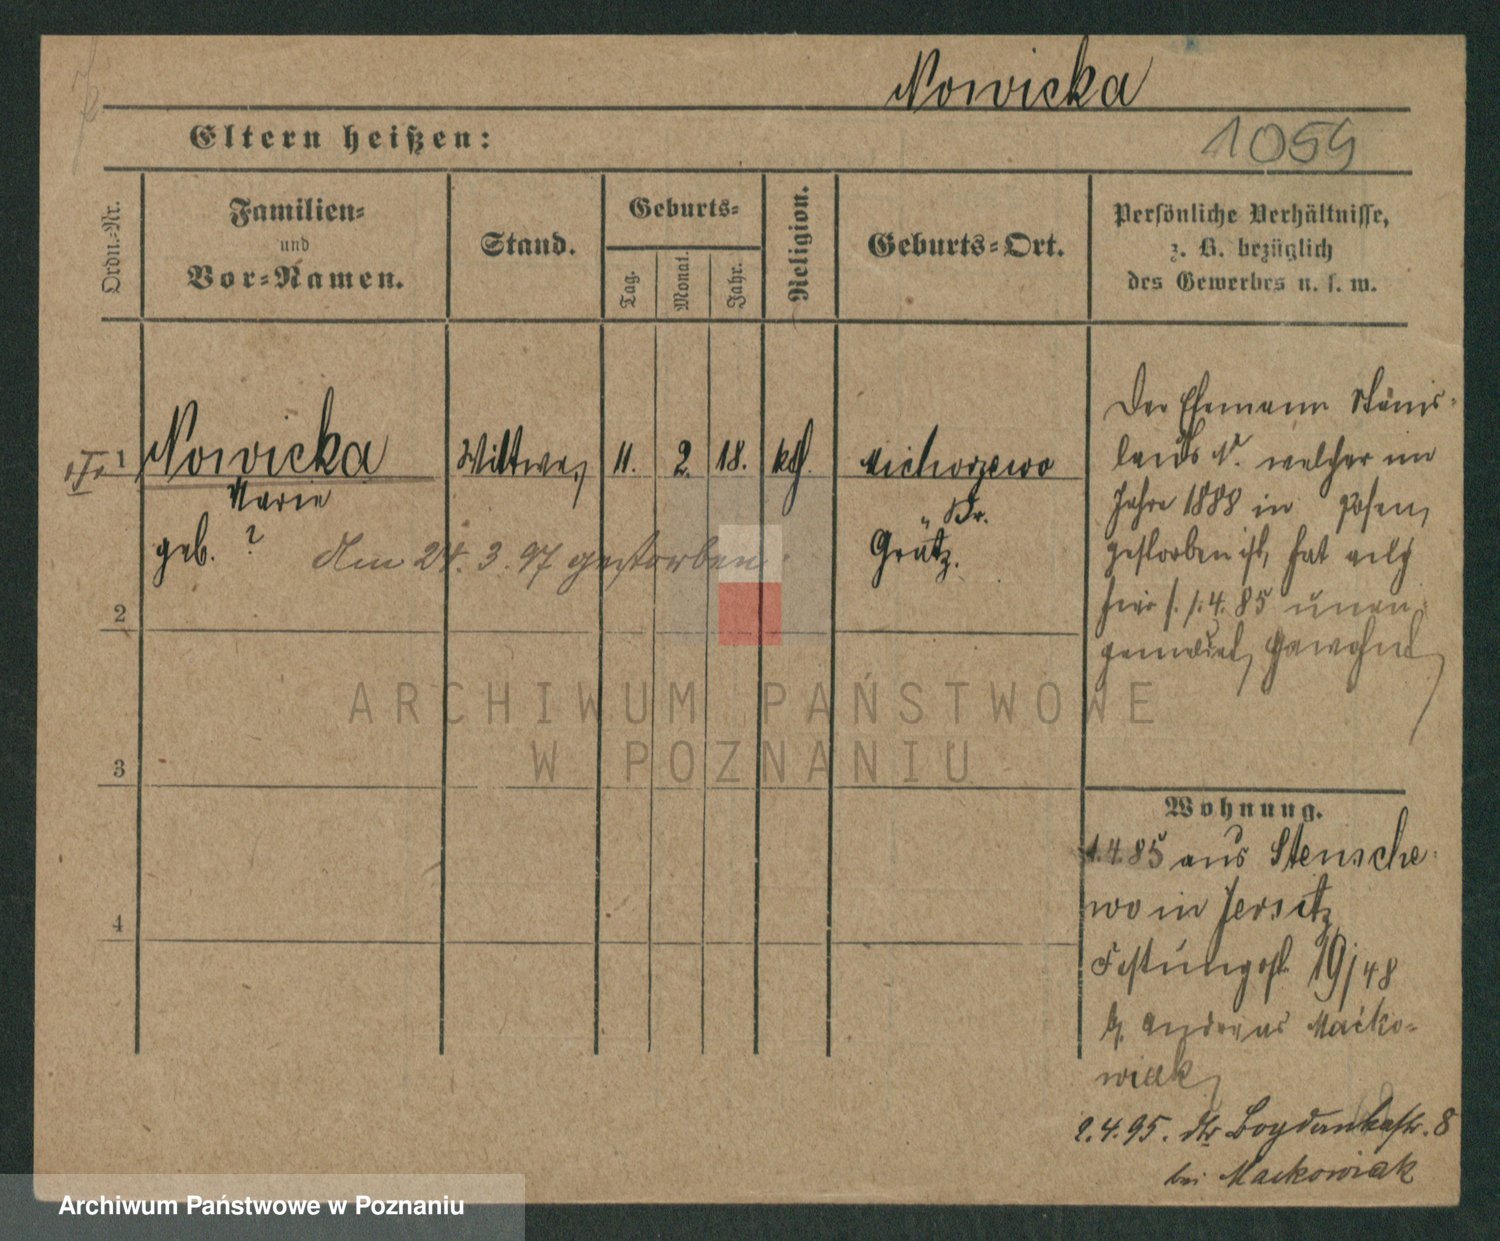 Nowicka
Eltern heißen:
1059
Ordn.-Nr.
Familien-
und
Vor-Namen.
Stand.
Geburts-
Tag.
Monat.
Jahr.
Religion.
Geburts-Ort.
Persönliche Verhältnisse,
z. B. bezüglich
des Gewerbes u. s. w.
1 Nowicka Wittwe, 11. 2. 18. kth. Michorzewo
Marie
Kr.
geb. ? Am 24. 3. 97 gestorben. Grätz.
Der Ehemann Stanis-
laus N. welcher im
Jahre 1888 in Posen,
gestorben ist, hat
hier s. 1.4.85 unan-
gemeldet, gewohnt,
2
3
4
Wohnung.
1.4.85 aus Stensche-
wo in Jersitz
Festungsst. 19/48
b. Andreas Maćko-
wiak,
2.4.95. Bogdankastr. 8
bei Mackowiak
ARCHIWUM PAŃSTWOWE
W POZNANIU
Archiwum Państwowe w Poznaniu